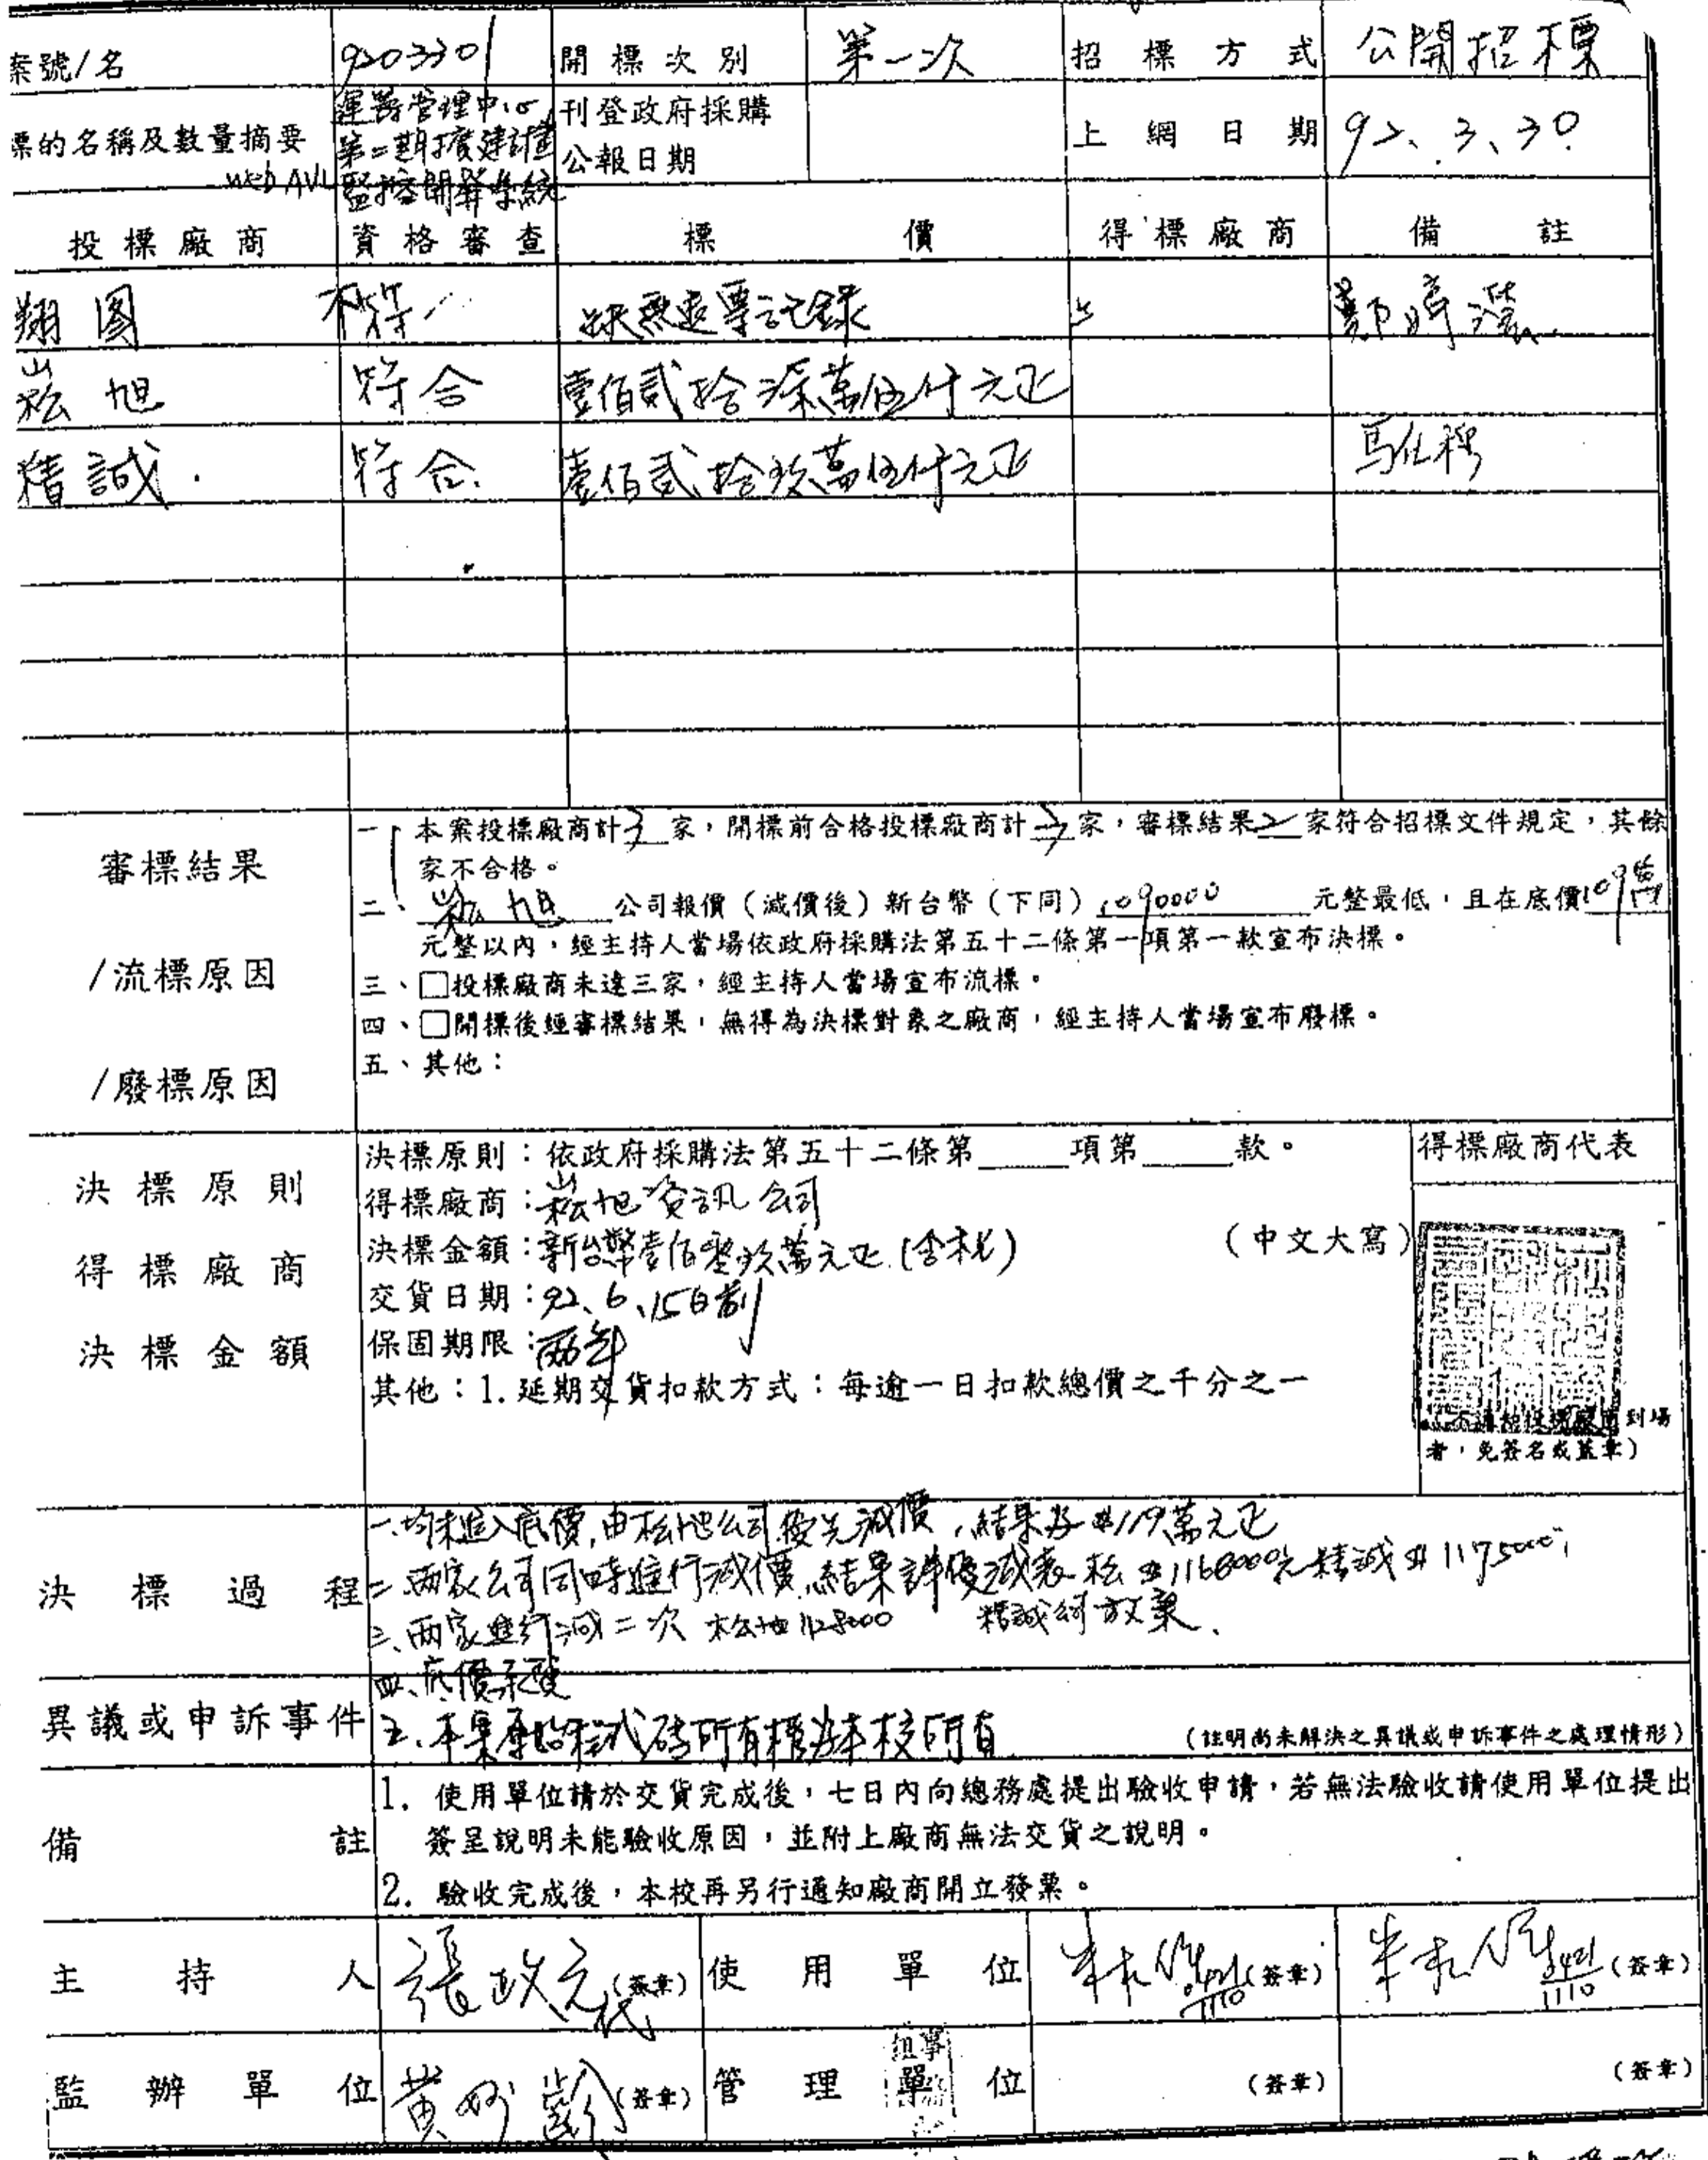 案號/名 920330 開標次別 第一次 招標方式 公開招標
標的名稱及數量摘要 運籌管理中心 刊登政府採購 上網日期 92、3、30
第二期擴建計畫 公報日期
web AVL監控開發系統
投標廠商 資格審查 標價 得標廠商 備註
翔圖 不符 缺無退票記錄
崧旭 符合 壹佰貳拾柒萬伍仟元正
精誠 符合 壹佰貳拾玖萬伍仟元正
審標結果
一、本案投標廠商計3家，開標前合格投標廠商計3家，審標結果2家符合招標文件規定，其餘
家不合格。
二、崧旭公司報價（減價後）新台幣（下同）1090000元整最低，且在底價109萬
元整以內，經主持人當場依政府採購法第五十二條第一項第一款宣布決標。
/流標原因
三、□投標廠商未達三家，經主持人當場宣布流標。
四、□開標後經審標結果，無得為決標對象之廠商，經主持人當場宣布廢標。
/廢標原因
五、其他：
決標原則 決標原則：依政府採購法第____項第____款。 得標廠商代表
得標廠商：崧旭資訊公司
得標廠商 決標金額：新台幣壹佰零玖萬元正(含稅) （中文大寫）
交貨日期：92、6、15日前
決標金額 保固期限：兩年
其他：1.延期交貨扣款方式：每逾一日扣款總價之千分之一
到場
者，免簽名或蓋章）
決標過程
一、均未進入底價，由松旭公司優先減價，結果為$119萬元正
二、兩家公司同時進行減價，結果詳優減表 松$1168000元 精誠$1175000
三、兩家進行減二次 松旭1128000 精誠公司放棄
四、底價承費
異議或申訴事件 五、本案原始程式碼所有權為本校所有 （註明尚未解決之異議或申訴事件之處理情形）
備註
1. 使用單位請於交貨完成後，七日內向總務處提出驗收申請，若無法驗收請使用單位提出
簽呈說明未能驗收原因，並附上廠商無法交貨之說明。
2. 驗收完成後，本校再另行通知廠商開立發票。
主持人 張政元代(簽章) 使用單位 0421 1110 (簽章) 0421 1110 (簽章)
監辦單位 黃妙齡(簽章) 管理單位 (簽章) (簽章)